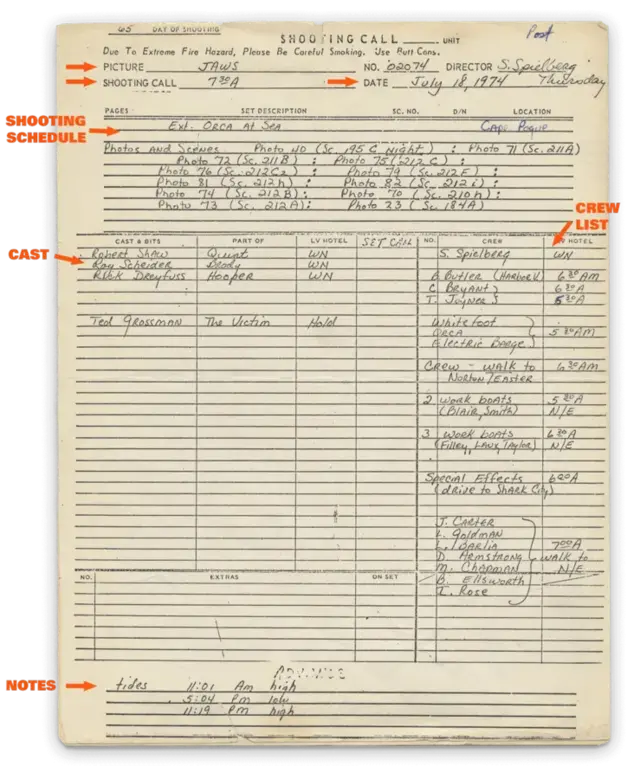 65 DAY OF SHOOTING
SHOOTING CALL UNIT Post
Due To Extreme Fire Hazard, Please Be Careful Smoking. Use Butt Cans.
PICTURE JAWS NO. 02074 DIRECTOR S. Spielberg
SHOOTING CALL 7 30 A DATE July 18, 1974 Thursday
PAGES SET DESCRIPTION SC. NO. D/N LOCATION
SHOOTING SCHEDULE
Ext. ORCA At Sea Cape Pogue
Photos And Scenes Photo 40 (Sc. 195 C Night) : Photo 71 (Sc. 211A)
Photo 72 (Sc. 211B) : Photo 75 (212 C) :
Photo 76 (Sc. 212C2) : Photo 79 (Sc. 212 F) :
Photo 81 (Sc. 212h) : Photo 82 (Sc. 212 i) :
Photo 74 (Sc. 212B) : Photo 70 (Sc. 210h) :
Photo 73 (Sc. 212A) : Photo 23 (Sc. 184A)
CREW LIST
CAST & BITS PART OF LV HOTEL SET CALL NO. CREW HOTEL
CAST
Robert Shaw Quint WN S. Spielberg WN
Roy Scheider Brody WN
Rick Dreyfuss Hooper WN B. Butler (Harbor V.) 6 30 AM
C. Bryant 6 30 A
T. Joyner 5 30 A
Ted Grossman The Victim Hold Whitefoot
ORCA 5 30 AM
Electric Barge
Crew - walk to 6 30 AM
Norton/Easter
2 work boats 5 30 A
(Blair, Smith) N/E
3 work boats 6 30 A
(Filley, Laux, Taylor) N/E
Special Effects 6 00 A
(drive to Shark City)
J. Carter
L. Goldman
L. Barlia 7 00 A
D. Armstrong walk to
M. Chapman N/E
NO. EXTRAS ON SET B. Ellsworth
I. Rose
ADVANCE
NOTES
tides 11:01 Am high
5:04 Pm low
11:19 Pm high